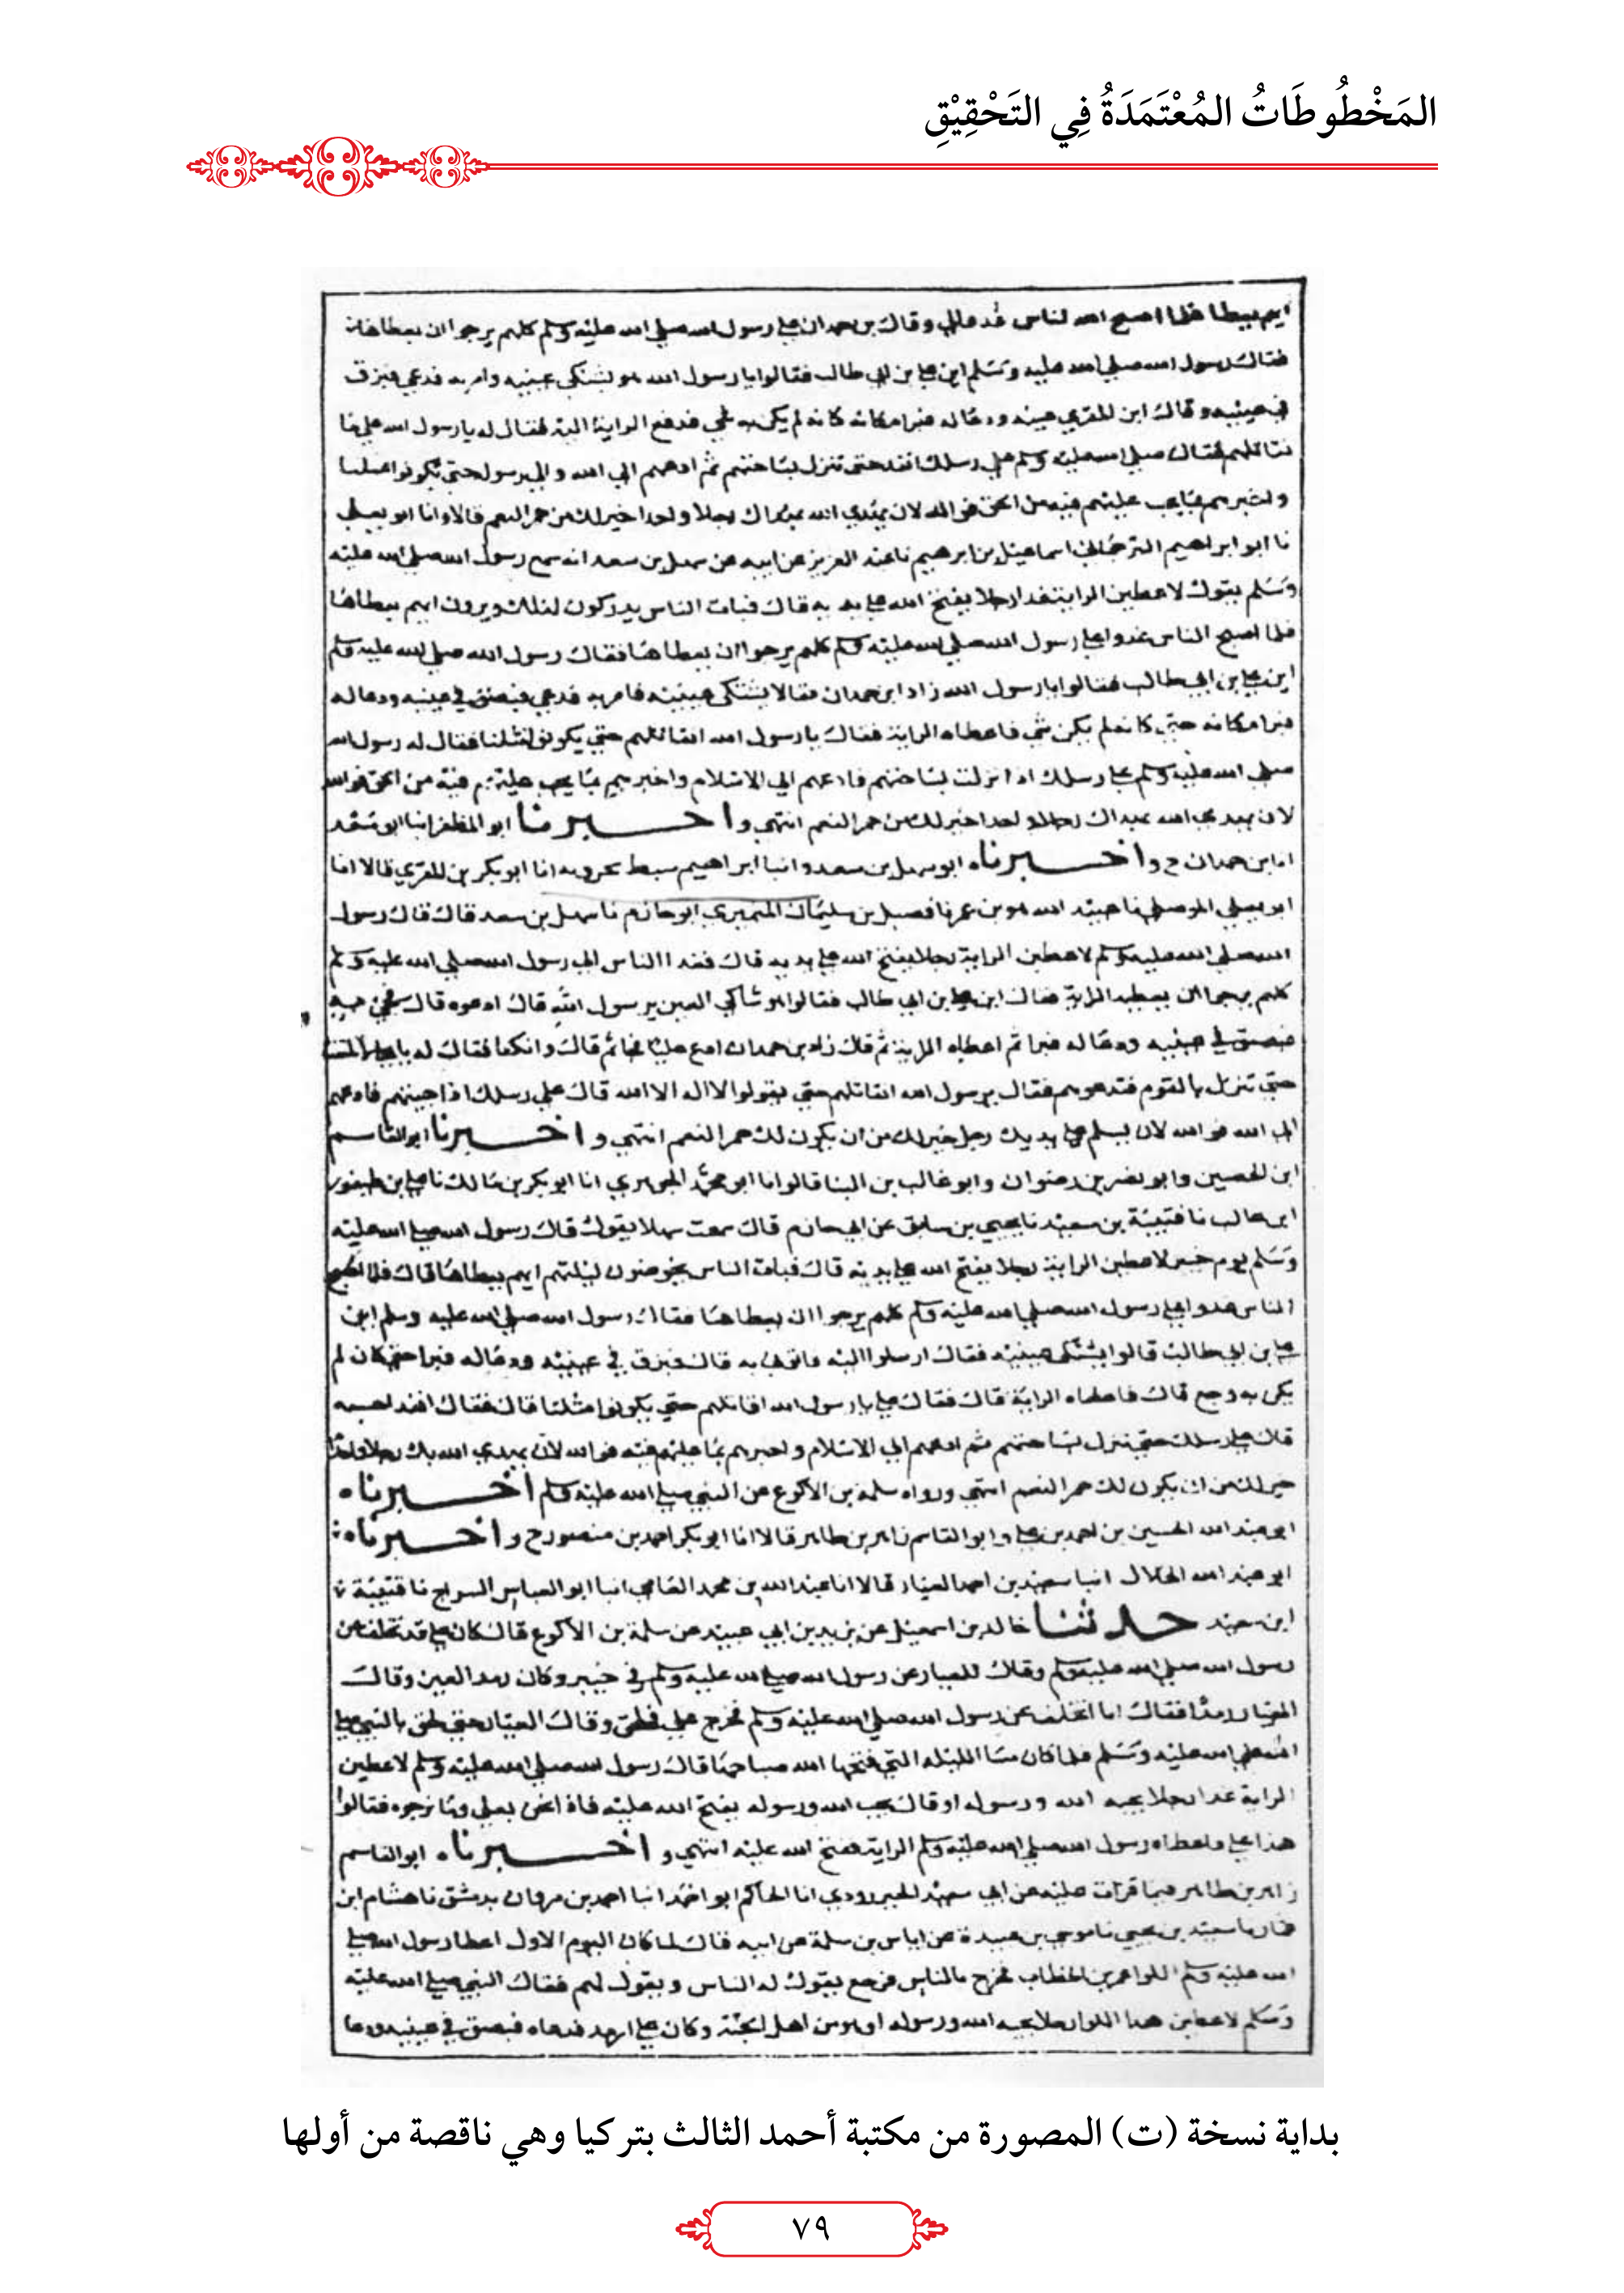 المَخْطُوطَاتُ المُعْتَمَدَةُ فِي التَحْقِيْقِ
ايهم يعطاها فلما اصبح الناس غدوا وقال بن حمدان على رسول الله صلى الله عليه وسلم كلهم يرجوا ان يعطاها
فقال رسول الله صلي الله عليه وسلم اين علي بن ابي طالب فقالوا يا رسول الله هو يشتكي عينيه وامر به فدعي فبزق
في عينيه وقال ابن المقري عينه ودعا له فبرا مكانه كانه لم يكن به شي فدفع الراية اليه فقال له يا رسول الله علي ما
نقاتلهم فقال صلي الله عليه وسلم علي رسلك انفذ حتى تنزل بساحتهم ثم ادعهم الي الله والي رسوله حتي يكونوا
واخبرهم بما يجب عليهم فيه من الحق فوالله لان يهتدي الله رجلا واحدا خير لك من حمر النعم قالا وانا ابو يعلي
نا ابو ابراهيم الترجماني اسماعيل بن ابرهيم نا عبد العزيز عن ابيه عن سهل بن سعد انه سمع رسول الله صلي الله عليه
وسلم يقول لاعطين الراية غدا رجلا يفتح الله على يديه قال فبات الناس يدركون لذلك ويرون ايهم يعطاها
فلما اصبح الناس غدوا على رسول الله صلي الله عليه وسلم كلهم يرجوا ان يعطاها فقال رسول الله صلي الله عليه وسلم
اين علي بن ابي طالب فقالوا يا رسول الله زاد ابن حمدان فقالا يشتكي عينيه فامر به فدعي فبصق في عينيه ودعا له
فبرا مكانه حتي كانه لم يكن شي فاعطاه الراية فقال يا رسول الله اقاتلهم حتي يكونوا مثلنا فقال له رسول الله
صلي الله عليه وسلم على رسلك اذا نزلت بساحتهم فادعهم الي الاسلام واخبرهم بما يجب عليهم فيه من الحق فوالله
لان يهدي الله بهداك رجلا واحدا خير لك من حمر النعم انتهي واخبرنا ابو المظفر انبا ابو سعد
انا بن حمدان ح واخبرناه ابو سهل بن سعدو انبا ابراهيم سبط بحرويه انا ابو بكر بن المقري قالا انا
ابو يعلي الموصلي نا عبيد الله هو بن عمر نا فضيل بن سليمان النميري ابو حازم نا سهل بن سعد قال قال رسول
الله صلي الله عليه وسلم لاعطين الراية رجلا يفتح الله على يديه قال فغدا الناس الي رسول الله صلي الله عليه وسلم
كلهم يرجوا ان يعطيه الراية فقال اين علي بن ابي طالب فقالوا هو شاكي العين يرسول الله قال ادعوه قال فجي به
فبصق في عينيه ودعا له فبرا ثم اعطاه الراية ثم قال زاد بن حمدان قال فقال له
حتي تنزل بالقوم فتدعوهم فقال يرسول الله اقاتلهم حتي يقولوا لا اله الا الله قال علي رسلك اذا جيتهم فادعهم
الي الله فوالله لان يسلم علي يديك رجل خير لك من ان يكون لك حمر النعم انتهي واخبرنا ابو القاسم
ابن الحصين وابو نصر بن رضوان وابو غالب بن البنا قالوا انا ابو محمد الجوهري انا ابو بكر بن مالك نا علي بن طيفور
ابن غالب نا قتيبة بن سعيد نا يحيي بن سابق عن ابي حازم قال سمعت سهلا يقول قال رسول الله صلى الله عليه
وسلم يوم خيبر لاعطين الراية رجلا يفتح الله على يديه قال فبات الناس يخوضون ليلتهم ايهم يعطاها قال فلما اصبح
الناس غدوا علي رسول الله صلي الله عليه وسلم كلهم يرجوا ان يعطاها فقال رسول الله صلي الله عليه وسلم اين
علي بن ابي طالب قالوا يشتكي عينيه فقال ارسلوا اليه فاتوني به قال فبزق في عينيه ودعا له فبرا حتي كان لم
يكن به وجع قال فاعطاه الراية قال فقال علي يا رسول الله اقاتلهم حتي يكونوا مثلنا قال فقال انفذ
قال على رسلك حتي تنزل بساحتهم ثم ادعهم الي الاسلام واخبرهم بما عليهم فيه فوالله لان يهدي الله بك رجلا واحدا
خير لك من ان يكون لك حمر النعم انتهي ورواه سلمة بن الاكوع عن النبي صلى الله عليه وسلم اخبرناه
ابو عبد الله الحسين بن احمد بن علي وابو القاسم زاهر بن طاهر قالا انا ابو بكر احمد بن منصور ح واخبرناه
ابو عبد الله الخلال انبا سعيد بن احمد العيار قالا انا عبد الله بن محمد الفامي انبا ابو العباس السراج نا قتيبة
ابن سعيد حدثنا خالد بن اسمعيل عن يزيد بن ابي عبيد عن سلمة بن الاكوع قال كان علي قد تخلف عن
رسول الله صلي الله عليه وسلم وقال العيار عن رسول الله صلى الله عليه وسلم في خيبر وكان رمد العين وقال
العيار رمدا فقال انا اتخلف عن رسول الله صلي الله عليه وسلم فخرج علي فلحق وقال العيار حتي لحق بالنبي صلى
الله عليه وسلم فلما كان مسا الليله التي فتحها الله صباحها قال رسول الله صلي الله عليه وسلم لاعطين
الراية غدا رجلا يحبه الله ورسوله او قال يحب الله ورسوله يفتح الله عليه فاذا نحن بعلي وما نرجوه فقالوا
هذا علي فاعطاه رسول الله صلي الله عليه وسلم الراية ففتح الله عليه انتهي واخبرناه ابو القاسم
زاهر بن طاهر فيما قرات عليه عن ابي سعيد الجيزرودي انا الحاكم ابو احمد انبا احمد بن مروان بدمشق نا هشام ابن
عمار نا سعيد بن يحيي نا موسي بن عبيدة عن اياس بن سلمة عن ابيه قال لما كان اليوم الاول اعطا رسول الله صلى
الله عليه وسلم اللوا عمر بن الخطاب فخرج بالناس فرجع يقول له الناس ويقول لهم فقال النبي صلى الله عليه
وسلم لاعطين هذا اللوا رجلا يحبه الله ورسوله او هو من اهل الجنة وكان علي ارمد فدعاه فبصق في عينيه ودعا
بداية نسخة (ت) المصورة من مكتبة أحمد الثالث بتركيا وهي ناقصة من أولها
٧٩